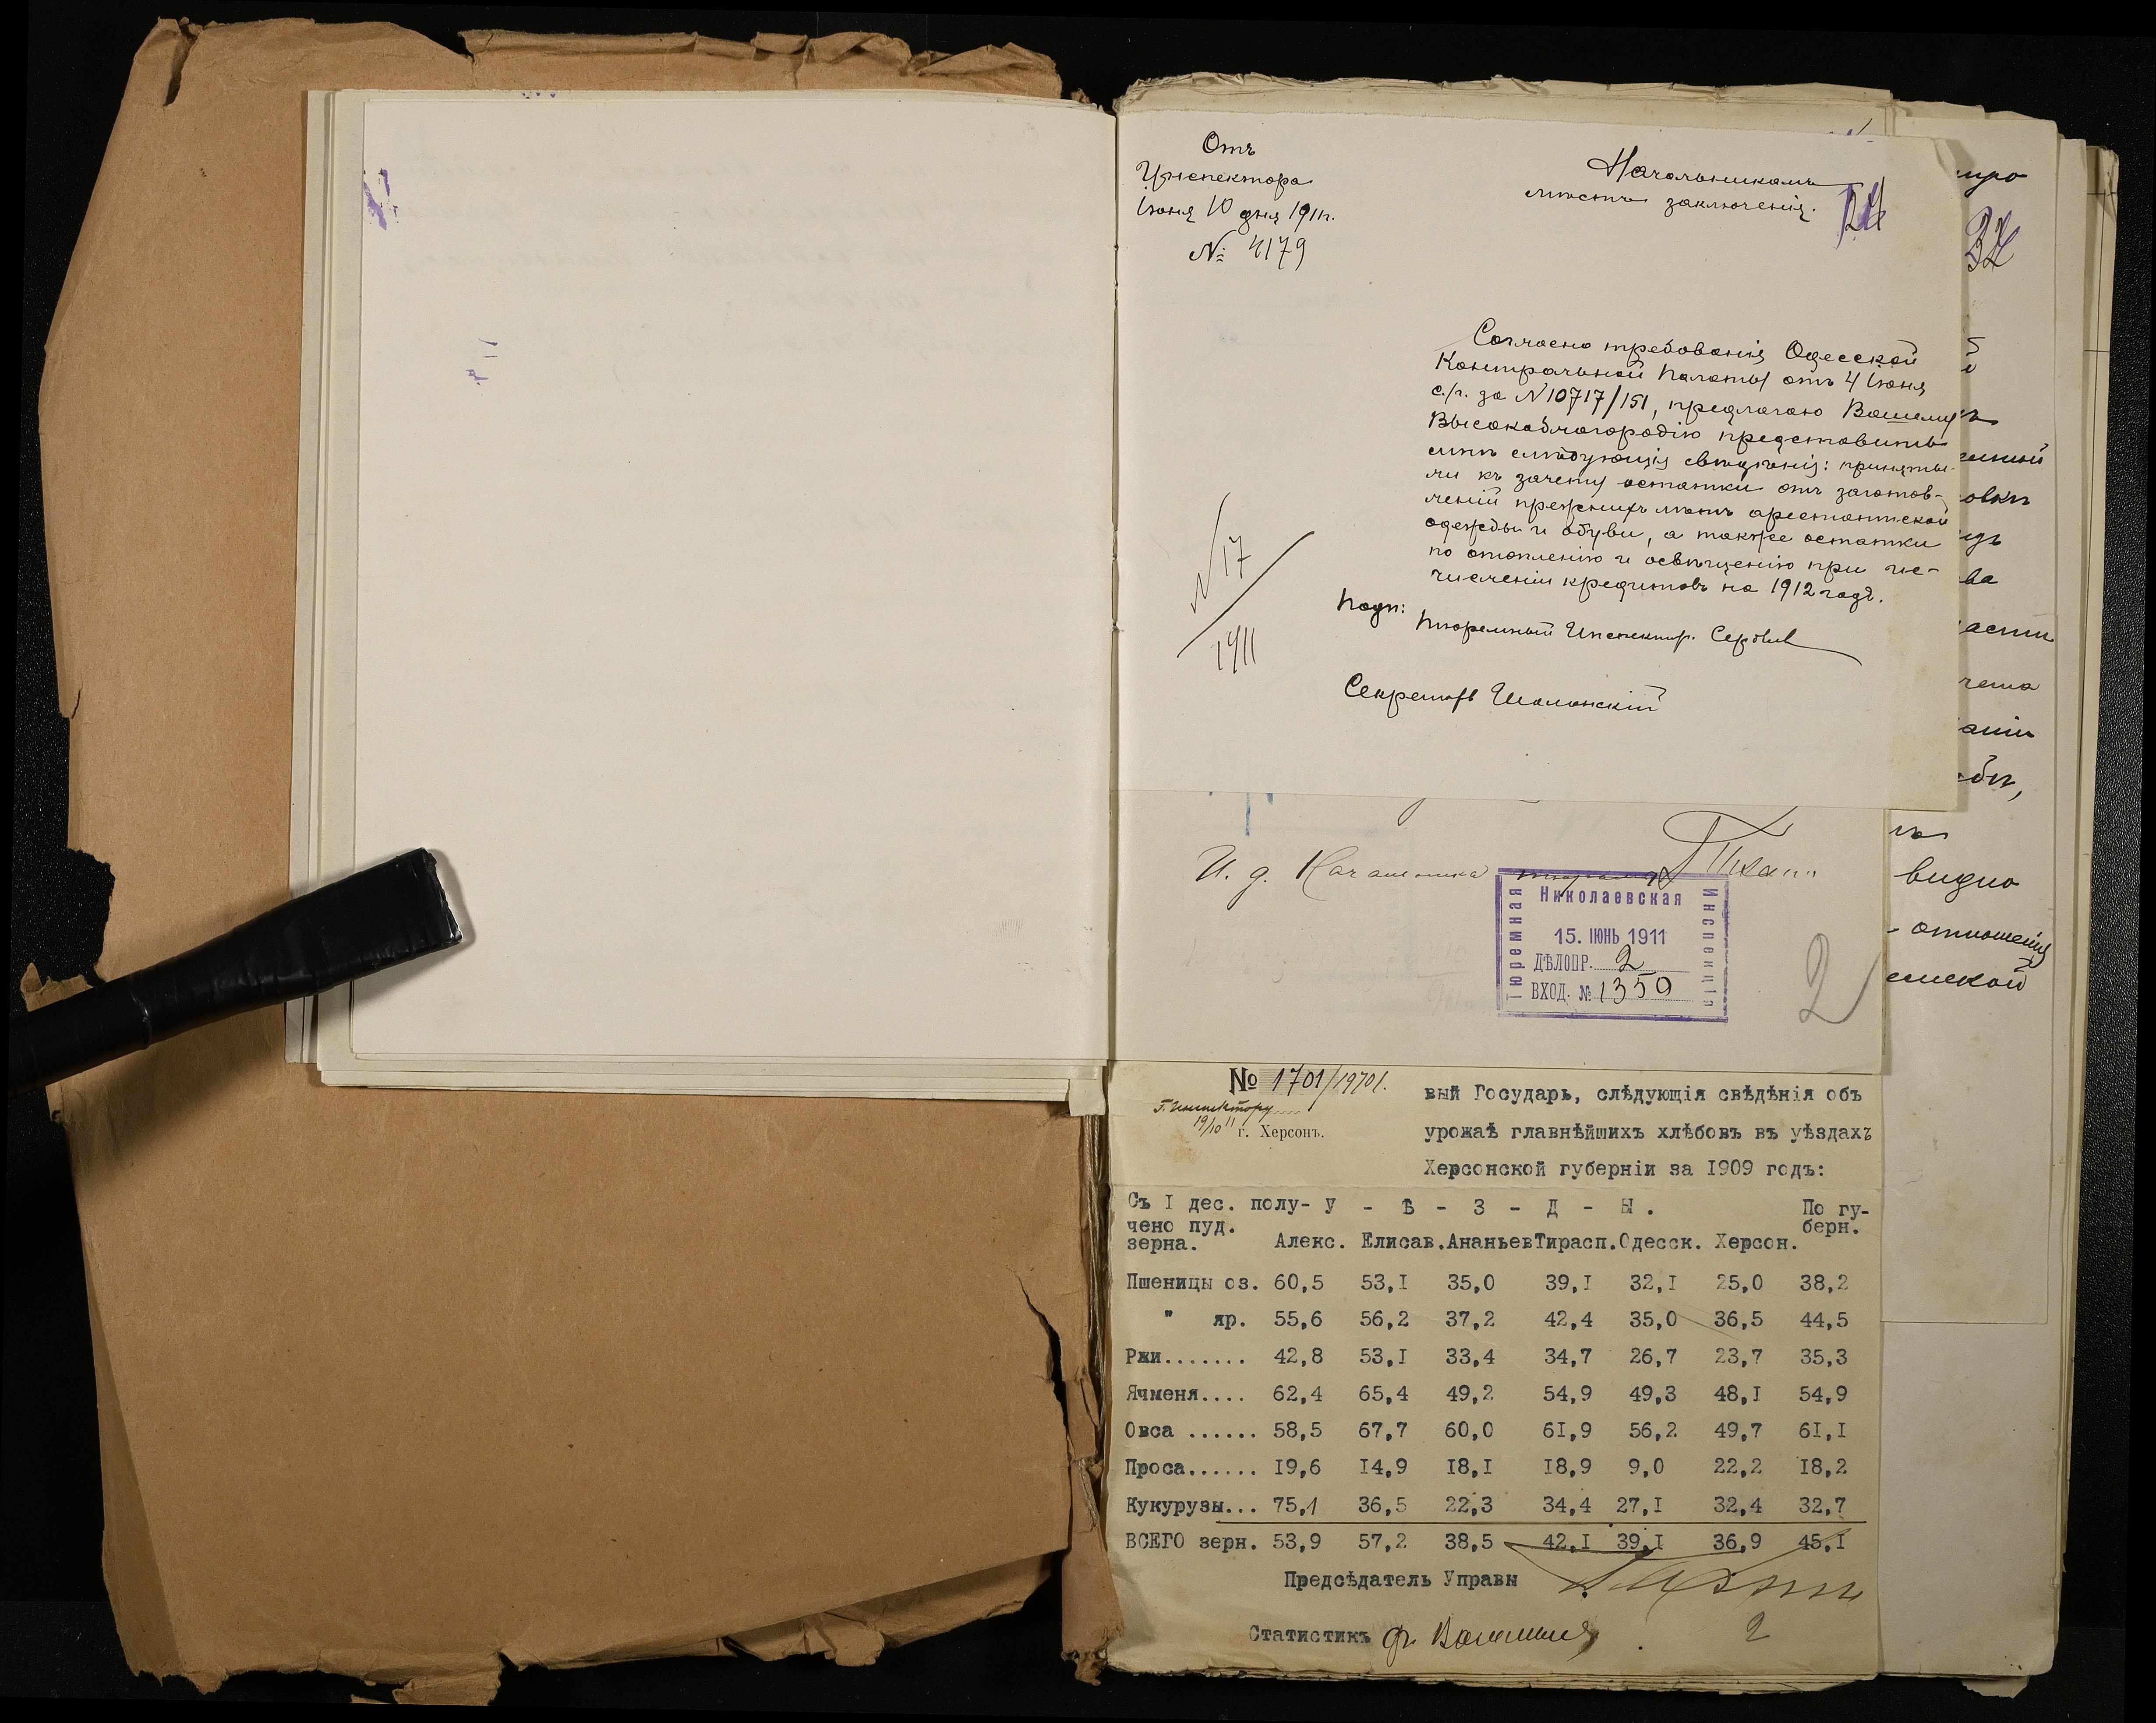 Отъ
Инспектора
Іюня 10 дня 1911г.
№ 4179
Начальникамъ
мѣстъ заключенія.
24
32
Согласно требованія Одесской
Контрольной Палаты отъ 4 Іюня
с./г. за №10717/151, предлагаю Вашему
Высокоблагородію представить
мнѣ слѣдующія свѣдѣнія: приняты-
ли къ зачету остатки отъ заготов-
леній прежнихъ лѣтъ арестантской
одежды и обуви, а также остатки
по отопленію и освѣщенію при ис-
численіи кредитовъ на 1912 годъ.
Подп:
Тюремный Инспектор.
Секретарь
№ 17
1911
И. д. Начальника тюрьмы
Николаевская
Тюремная
Инспекція
15. ІЮНЬ 1911
ДѢЛОПР. 2
ВХОД. № 1359
2
видно
отношенія
№ 1701/19701.
Г. Инспектору
19/10 11
г. Херсонъ.
вый Государь, слѣдующія свѣдѣнія объ
урожаѣ главнѣйшихъ хлѣбовъ въ уѣздахъ
Херсонской губерніи за I909 годъ:
Съ I дес. полу- У - Ѣ - З - Д - Ы . По гу-
чено пуд. берн.
зерна. Алекс. Елисав.АнаньевТирасп.Одесск. Херсон.
Пшеницы оз. 60,5 53,I 35,0 39,I 32,I 25,0 38,2
" яр. 55,6 56,2 37,2 42,4 35,0 36,5 44,5
Ржи....... 42,8 53,I 33,4 34,7 26,7 23,7 35,3
Ячменя.... 62,4 65,4 49,2 54,9 49,3 48,I 54,9
Овса ...... 58,5 67,7 60,0 6I,9 56,2 49,7 6I,I
Проса...... I9,6 I4,9 I8,I I8,9 9,0 22,2 I8,2
Кукурузы... 75,1 36,5 22,3 34,4 27,I 32,4 32,7
ВСЕГО зерн. 53,9 57,2 38,5 42,I 39,I 36,9 45,I
Предсѣдатель Управы
Статистикъ
2